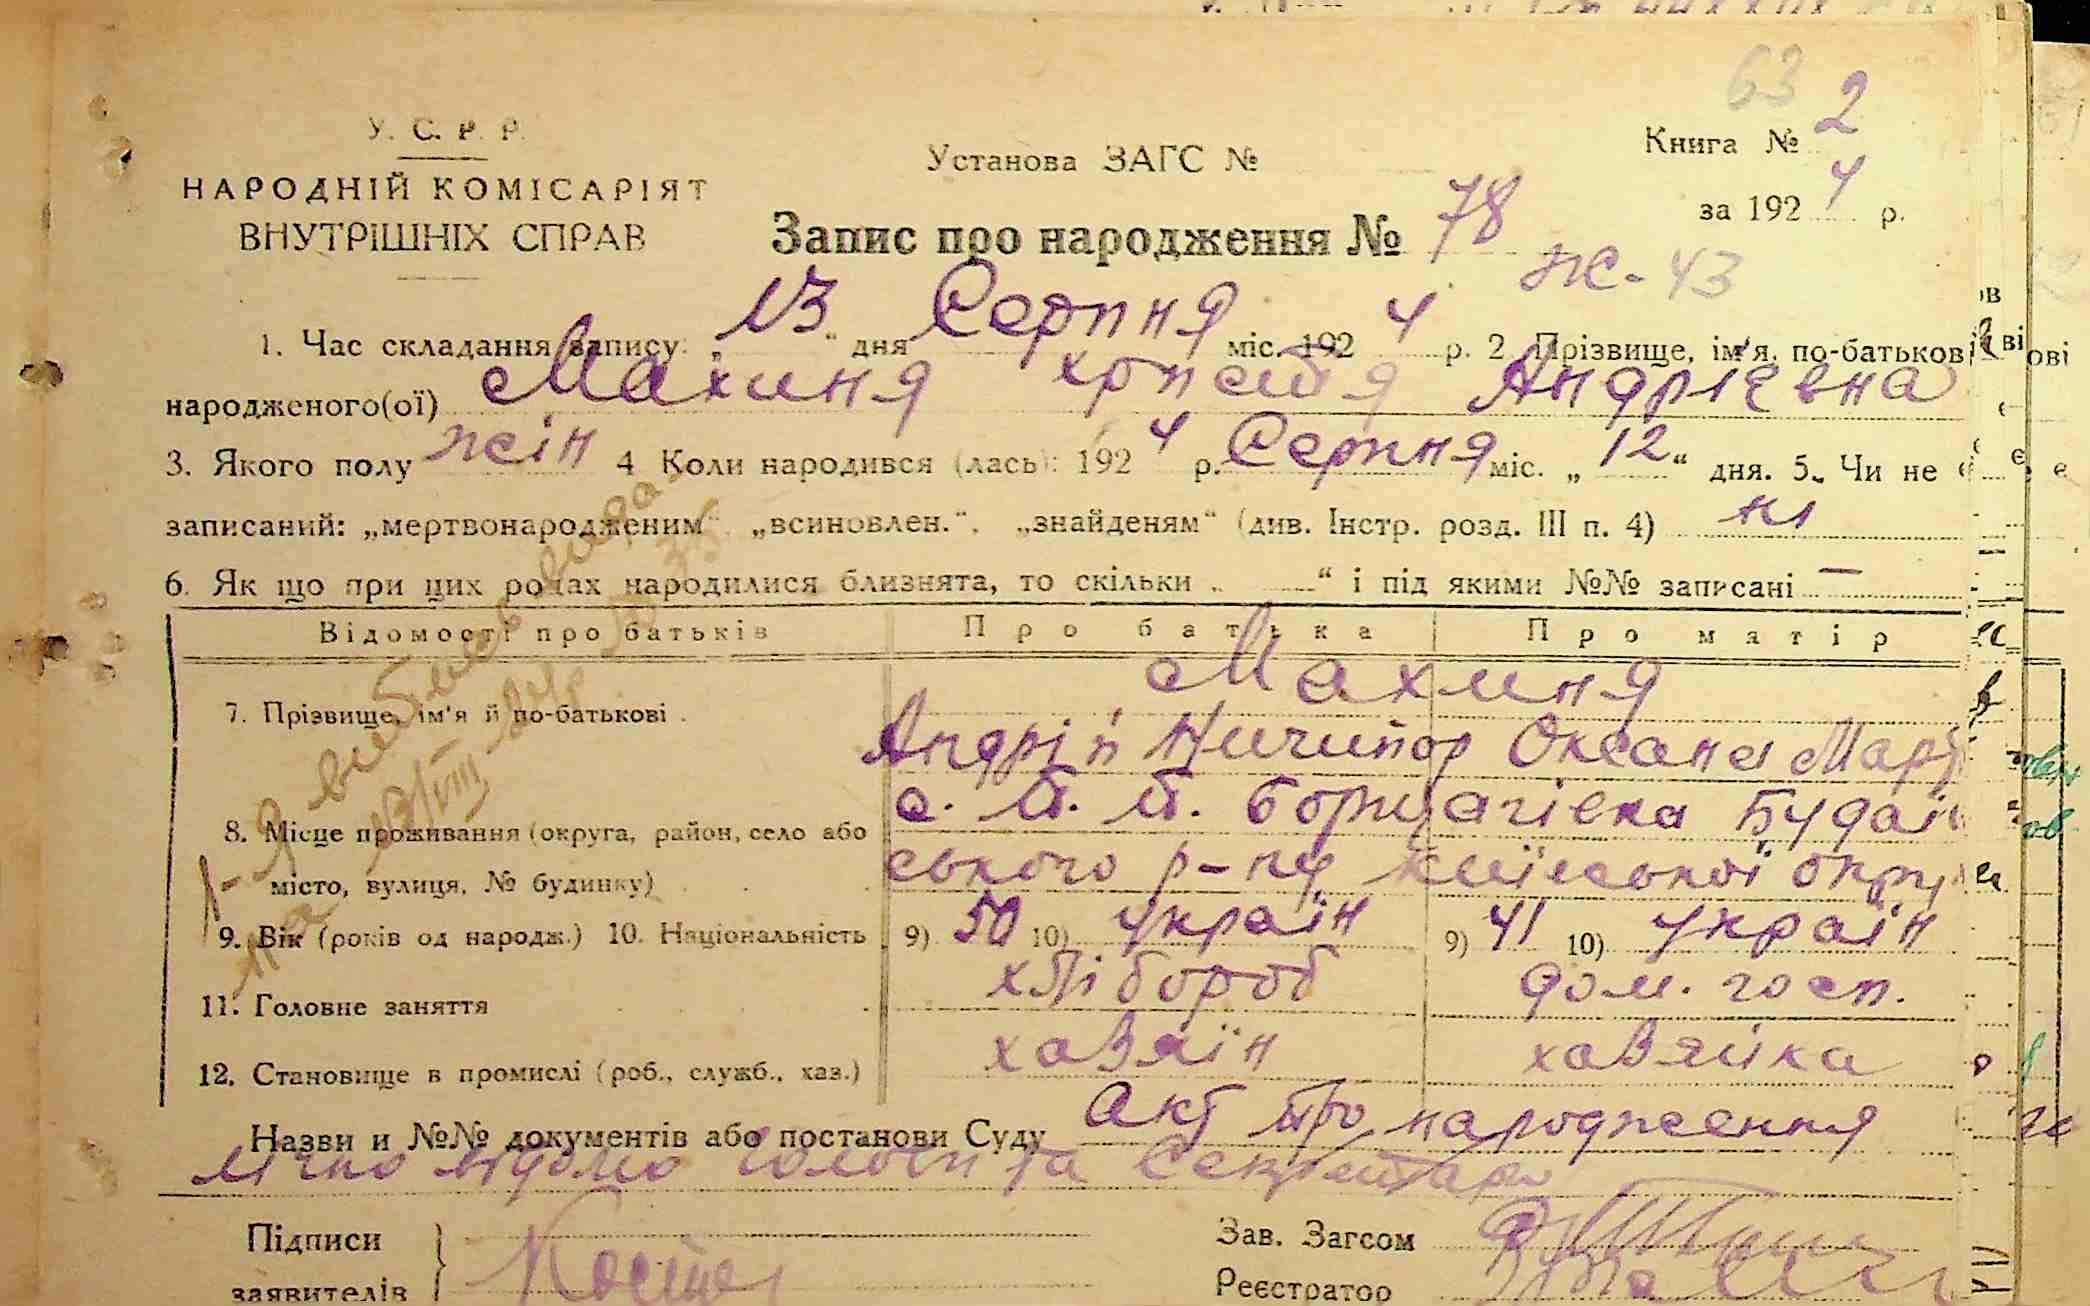 63
У. С. Р. Р.
НАРОДНІЙ КОМІСАРІЯТ
ВНУТРІШНІХ СПРАВ
Установа ЗАГС №
Книга № 2
за 192 4 р.
Запис про народження № 78
ж-43
1. Час складання запису: „ 13 " дня Серпня міс. 192 4 р. 2. Прізвище, ім'я, по-батькові
народженого(ої) Махиня Андріевна
3. Якого полу жін 4 Коли народився (лась): 192 4 р. Серпня міс. „ 12 " дня. 5. Чи не є
записаний: „мертвонародженим", „всиновлен.", „знайденям" (див. Інстр. розд. III п. 4) ні
6. Як що при цих родах народилися близнята, то скільки „ " і під якими №№ записані —
Відомості про батьків Про батька Про матір
Махиня
7. Прізвище, ім'я й по-батькові .
Андрій Ничипор Оксана Мар
с. П. П. Борщагівка Будаїв
8. Місце проживання (округа, район, село або
місто, вулиця, № будинку)
ського р-ну Київської округ
9. Вік (років од народж.) 10. Національність 9) 50 10) Україн 9) 41 10) Україн
11. Головне заняття хлібороб дом. госп.
12. Становище в промислі (роб., служб., хаз.) хазяїн хазяйка
Назви и №№ документів або постанови Суду Акт про народження
лічно відомо голови та Секретарю
Підписи
заявителів
Зав. Загсом
Реєстратор